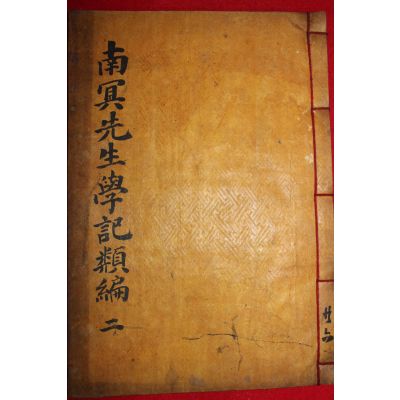 南冥先生學記類編 二
共六